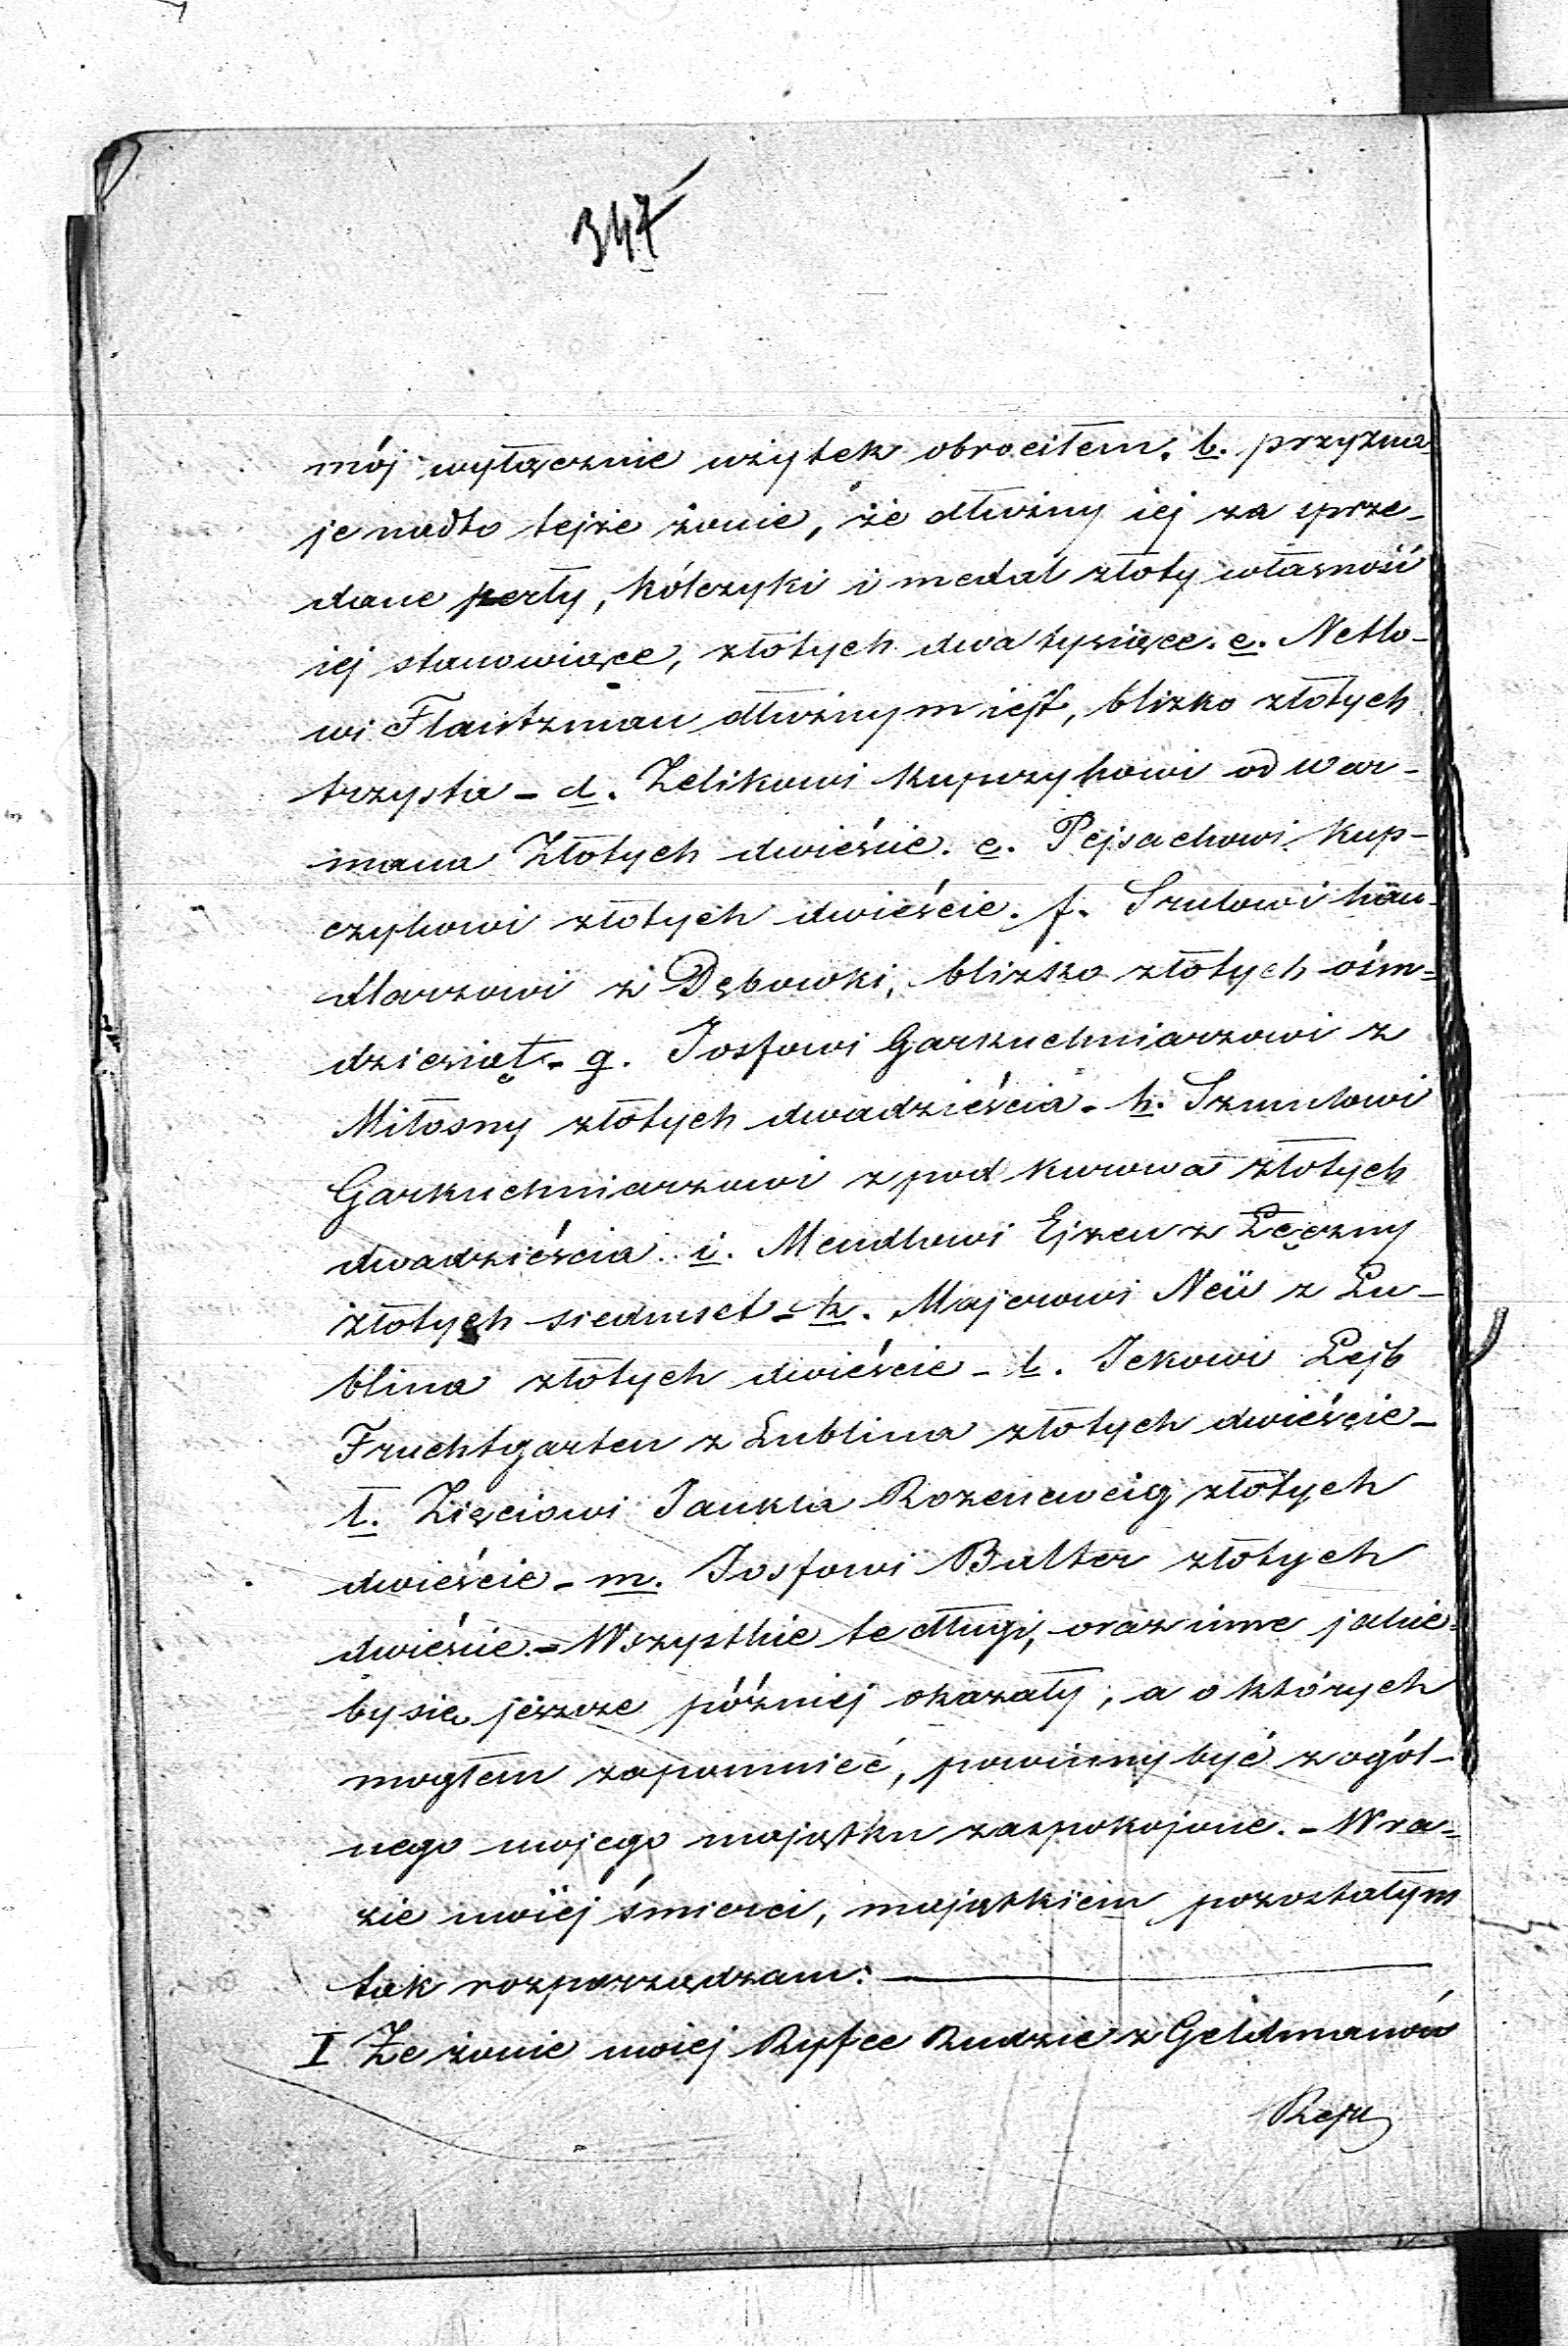 347
mój wyłącznie użytek obrociłem. b. przyzna=
je nadto tejże żonie, że dłużny iej za sprze-
dane perły, kólczyki i medal złoty własność
iej stanowiące, złotych dwa tysiące. c. Netlo-
wi Flantzman dłużnym iest, blizko złotych
trzysta - d. Zelikowi Kupczykowi od War-
mana Złotych dwieście. e. Pejsachowi Kup-
czykowi złotych dwieście. f. Srulowi han-
dlarzowi z Dębowki, blizko złotych ośm=
dziesiąt - g. Josfowi Garkuchniarzowi z
Miłosny złotych dwadzieścia - h. Szmulowi
Garkuchniarzowi z pod Kurowa złotych
dwadzieścia. i. Mendlowi Ejzen z Łęczny
złotych siedmset - k. Majerowi Neü z Lu-
blina złotych dwieście - l. Ickowi Lejb
Fruchtgarten z Lublina złotych dwieście -
ł. Zięciowi Jankla Rozencweig złotych
dwieście - m. Josfowi Bulter złotych
dwieście. - Wszystkie te długi, oraz inne jakie=
by się jeszcze później okazały, a o których
mogłem zapomnieć, powinny być z ogól-
nego mojego majątku zaspokojone. - W ra=
zie mojéj śmierci, majątkiem pozostałym
tak rozporządzam:
I Że żonie moiej Ryfce Rudzie z Geldmanów